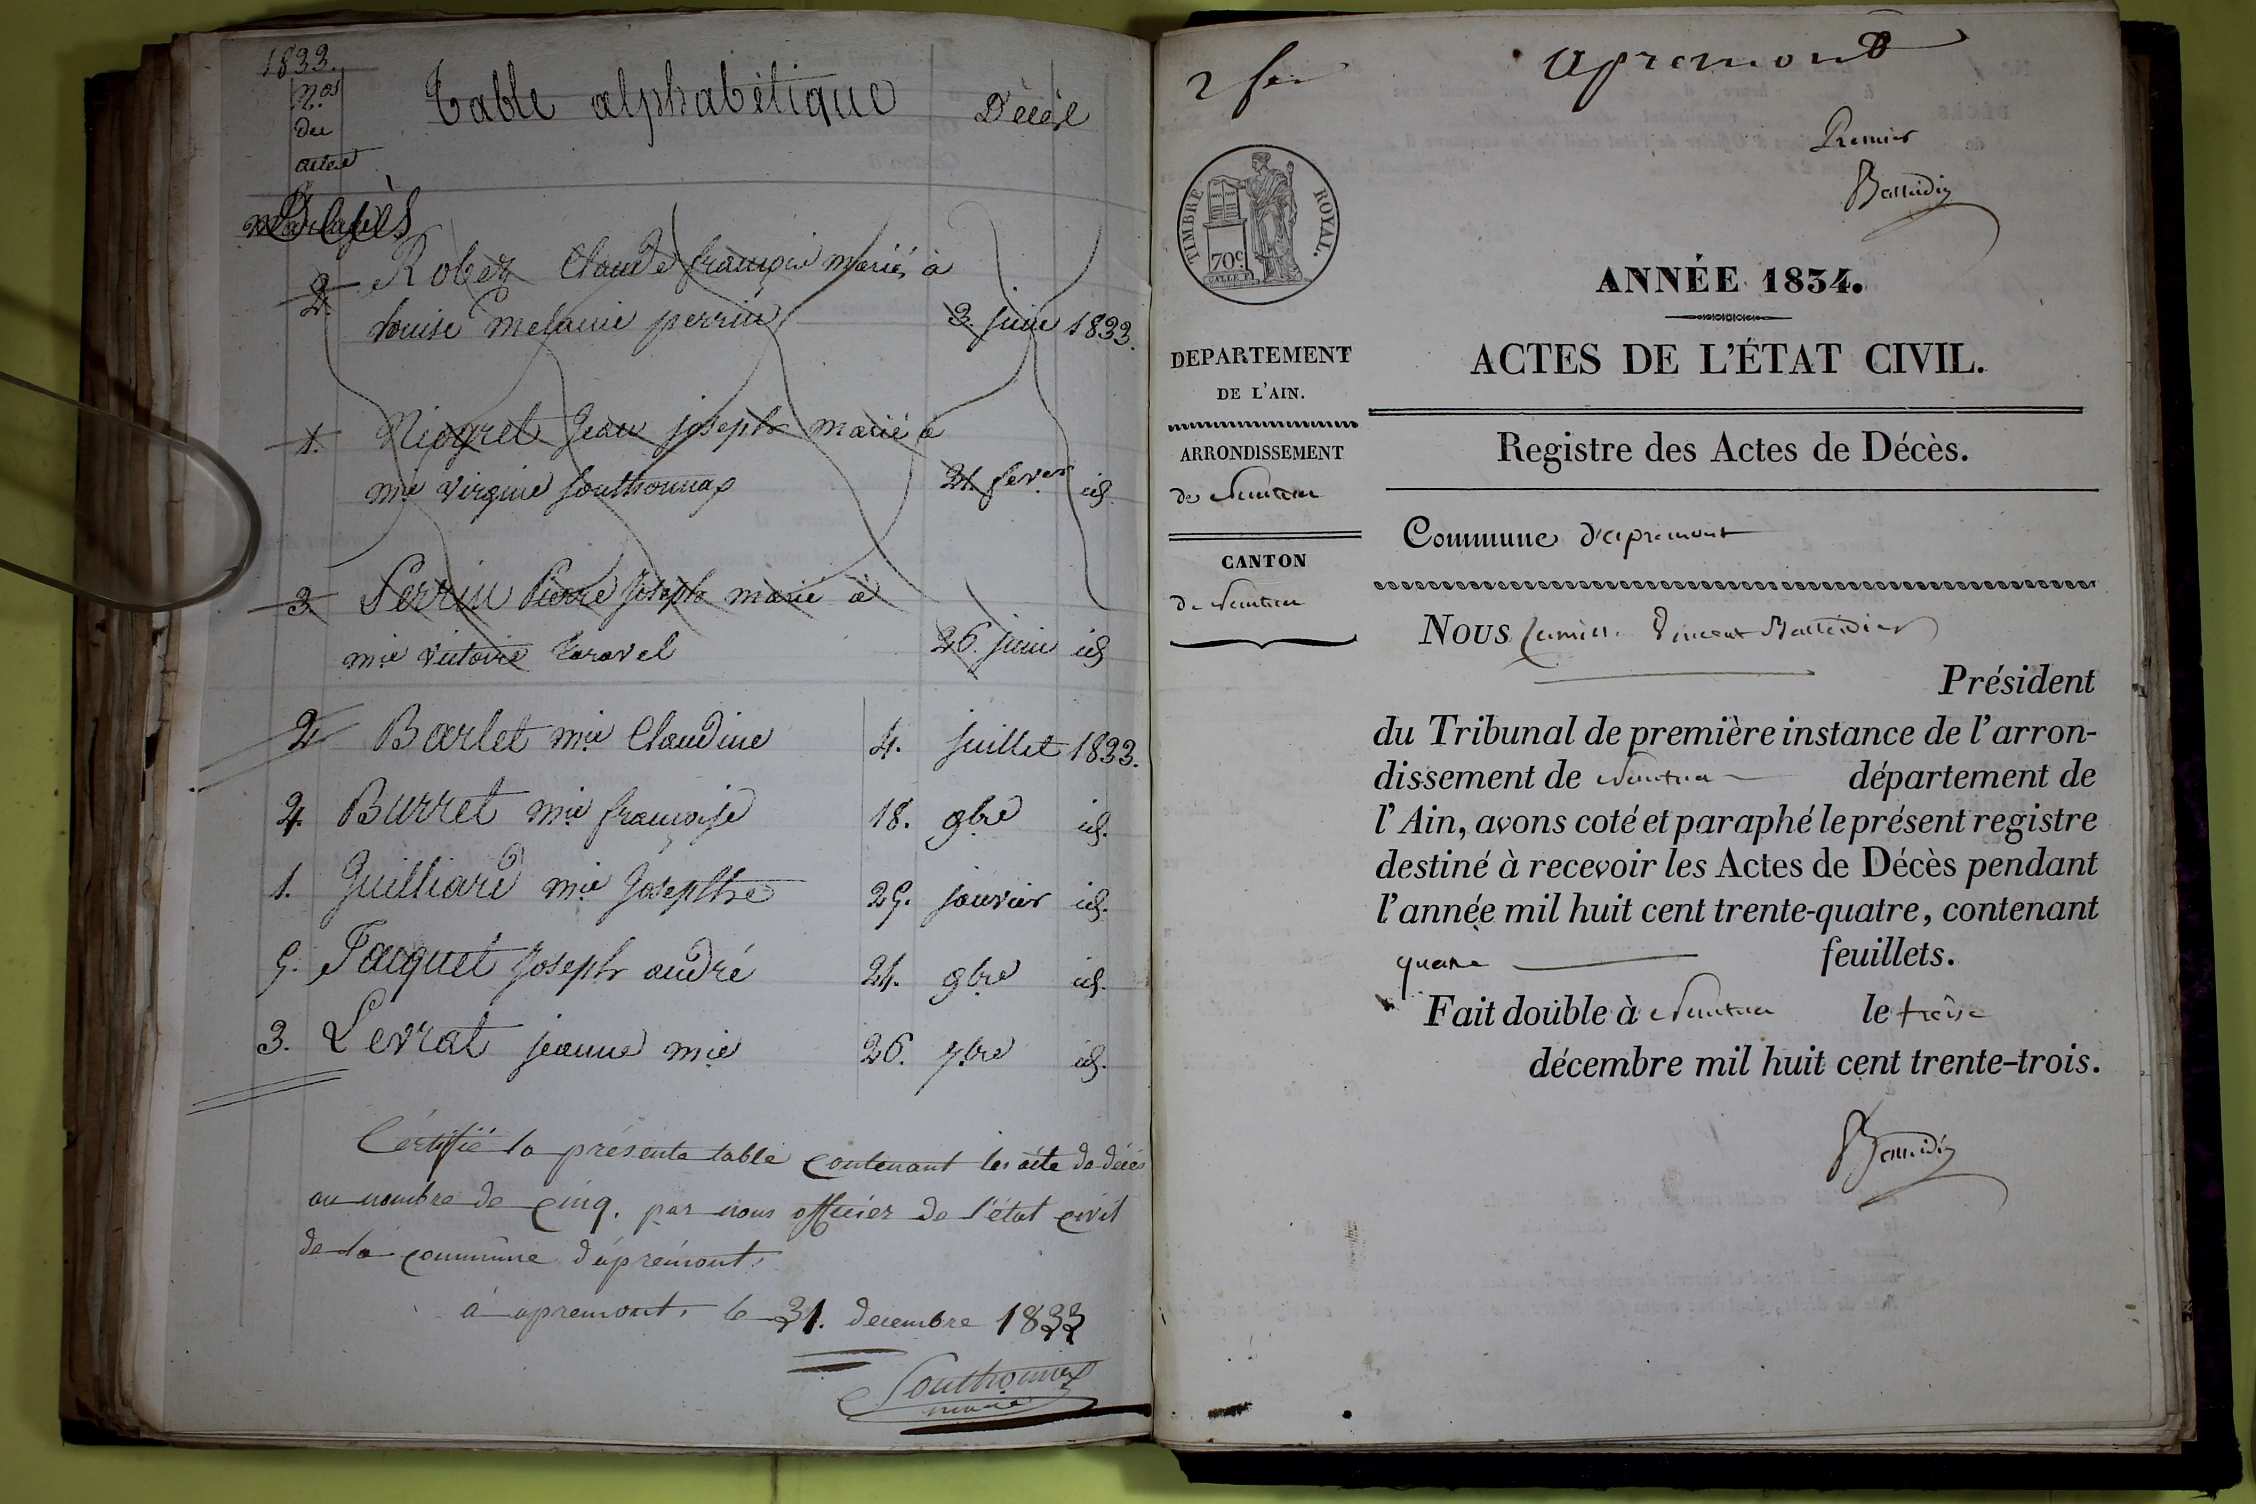 1833.
Nos
des
actes
Table alphabétique
Décès
Décès
2. Robez Claude françois marié à
Louise Melanie perrin 3. juin 1833.
1. Niogret Jean joseph marié a
mie Virginie Southonnax 21 fevr id.
3. Perrin Pierre Joseph marié à
mie Victoire Taravel 26. juin id
2 Barlet mie Claudine 4. juillet 1833.
4. Burret mie françoise 18. 9bre id.
1. Guilliard mie Josephte 25. janvier id.
5. Jacquet Joseph andré 24. 9bre id.
3. Levrat jeanne mie 26. 7bre id.
Certifié la présente table contenant les acte de décès
au nombre de cinq. par nous officier de l'état civil
de la commune d'apremont.
à apremont, le 31. decembre 1833
Southonnax
maire
apremont
Premier
TIMBRE ROYAL.
70c.
ANNÉE 1834.
ACTES DE L'ÉTAT CIVIL.
DEPARTEMENT
DE L'AIN.
ARRONDISSEMENT
de Nantua
CANTON
de Nantua
Registre des Actes de Décès.
Commune d'apremont
NOUS Vincent
Président
du Tribunal de première instance de l'arron-
dissement de Nantua département de
l'Ain, avons coté et paraphé le présent registre
destiné à recevoir les Actes de Décès pendant
l'année mil huit cent trente-quatre, contenant
quatre feuillets.
Fait double à Nantua le treise
décembre mil huit cent trente-trois.